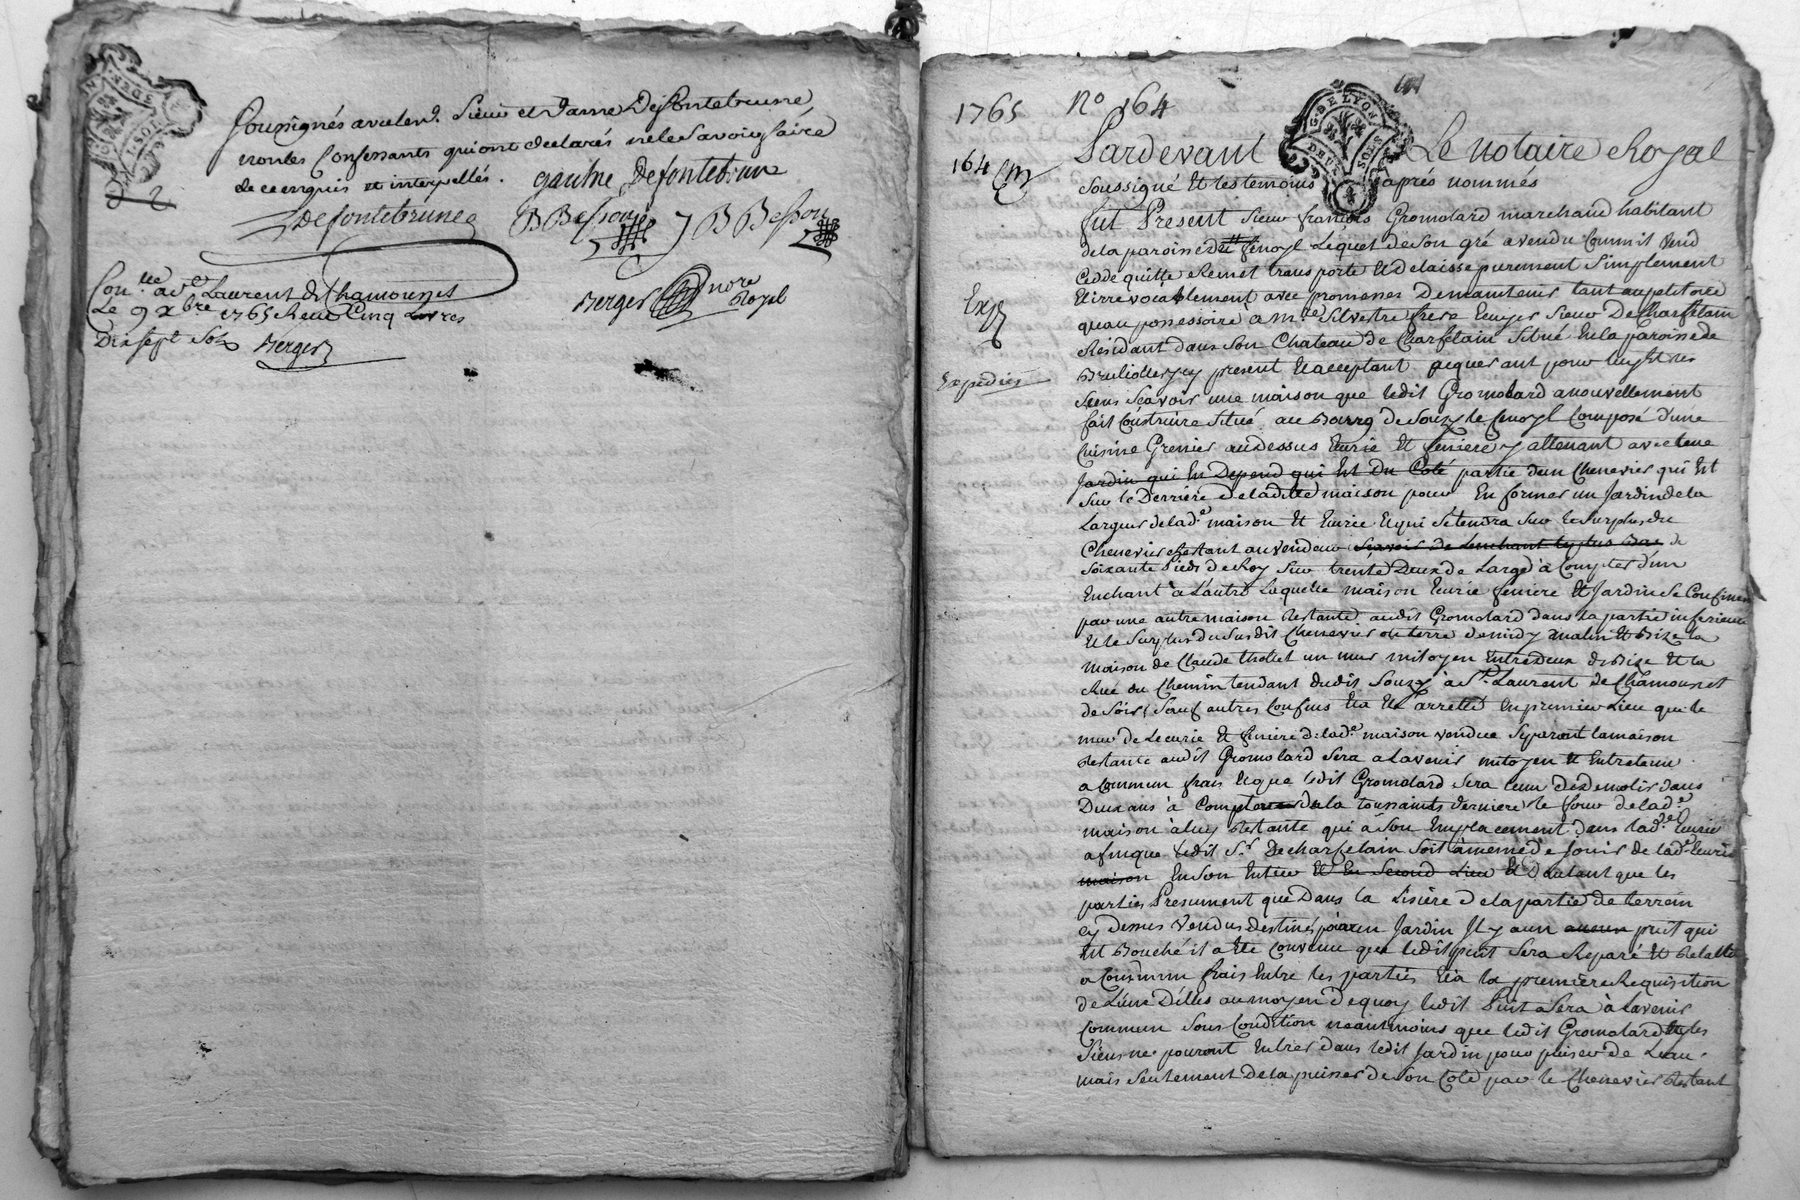 Soussignés avec led. Sieur et Dame Defontebrune,
non les Confessants qui ont declarés ne le Savoir faire
de ce enquis et interpellés.
gaulne Defontebrune
Defontebrune
B Besson
J B Besson
Con.lle a St Laurent de Chamousset
Le 9 Xbre 1765 Reçu Cinq Livres
Dix sept Sols Berger
Berger no.re Royal
1765 No 164
164
G. DE LYON
DEUX SOLS
Pardevant Le Notaire Royal
Soussigné Et les temoins après nommés
fut Present Sieur françois Gromolard marchand habitant
de la paroisse de fenoyl Lequel de Son gré a vendu Comme il vend
Cede quitte Remet transporte Et delaisse purement Simplement
Et irrevocablement avec promesses De maintenir tant au petitoire
qu'au possessoire a m.re Silvestre frere Ecuyer Sieur De Charfetain
Residant dans Son Chateau de Charfetain Situé En la paroisse de
Brullioles icy present Et acceptant aquerant pour luy Et les
Siens Scavoir une maison que ledit Gromolard a nouvellement
fait Construire Situé au Bourg de Souzy le fenoyl Composé d'une
Cuisine Grenier au dessus Ecurie Et feniere y attenant avec une
Jardin qui En Depend qui Est Du Coté partie d'un Chenevier qui Est
Sur le Derriére de ladite maison pour En former un Jardin de la
Largeur de lad.e maison Et Ecurie Et qui S'etendra Sur le Surplus du
Chenevier Restant au vendeur de
Soixante Pieds de Roy Sur trente Deux de Large à Compter d'un
Enchant à L'autre Laquelle maison Ecurie feniere Et Jardin Se Confinent
par une autre maison Restante audit Gromolard dans la partie inferieure
Et le Surplus du Susdit Chenevier ou terre de midy Matin Et Bize la
maison de Claude thollet un mur mitoyen Entredeux de Bize Et la
Rue ou Chemin tendant dudit Souzy à St. Laurent de Chamousset
de Soir, Sauf autres Confins Et a Eté arretté En premier Lieu que le
mur de Lecurie Et feniere de lad.e maison vendue Separant la maison
Restante audit Gromolard Sera a Lavenir mitoyen Et Entretenu
a Commun frais Et que ledit Gromolard Sera tenu de demolir dans
Deux ans à Compter de la toussaints derniere le four de lad.e
maison à luy Restante qui a Son Emplacement dans lad.e Ecurie
afin que ledit Sr. De charfetain Soit à meme de Jouir de lad.e Ecurie
maison En Son Entier Et En Second Lieu Et D'autant que les
parties Presument que Dans la Lisiére de la partie de terrein
cy dessus Vendu destinés pour un Jardin Il y a un aucun puit qui
Est Bouché il a Eté Convenu que ledit puit Sera Reparé Et Retably
a Commun frais Entre les parties Et à la premiére Requisition
de L'une D'elles au moyen de quoy ledit Puit Sera à Lavenir
Commun Sous Condition neantmoins que ledit Gromolard Et les
Siens ne pouront Entrer dans ledit Jardin pour puiser de L'eau
mais Seulement de la puiser de Son Coté par le Chenevier Restant
Exp
Expediés